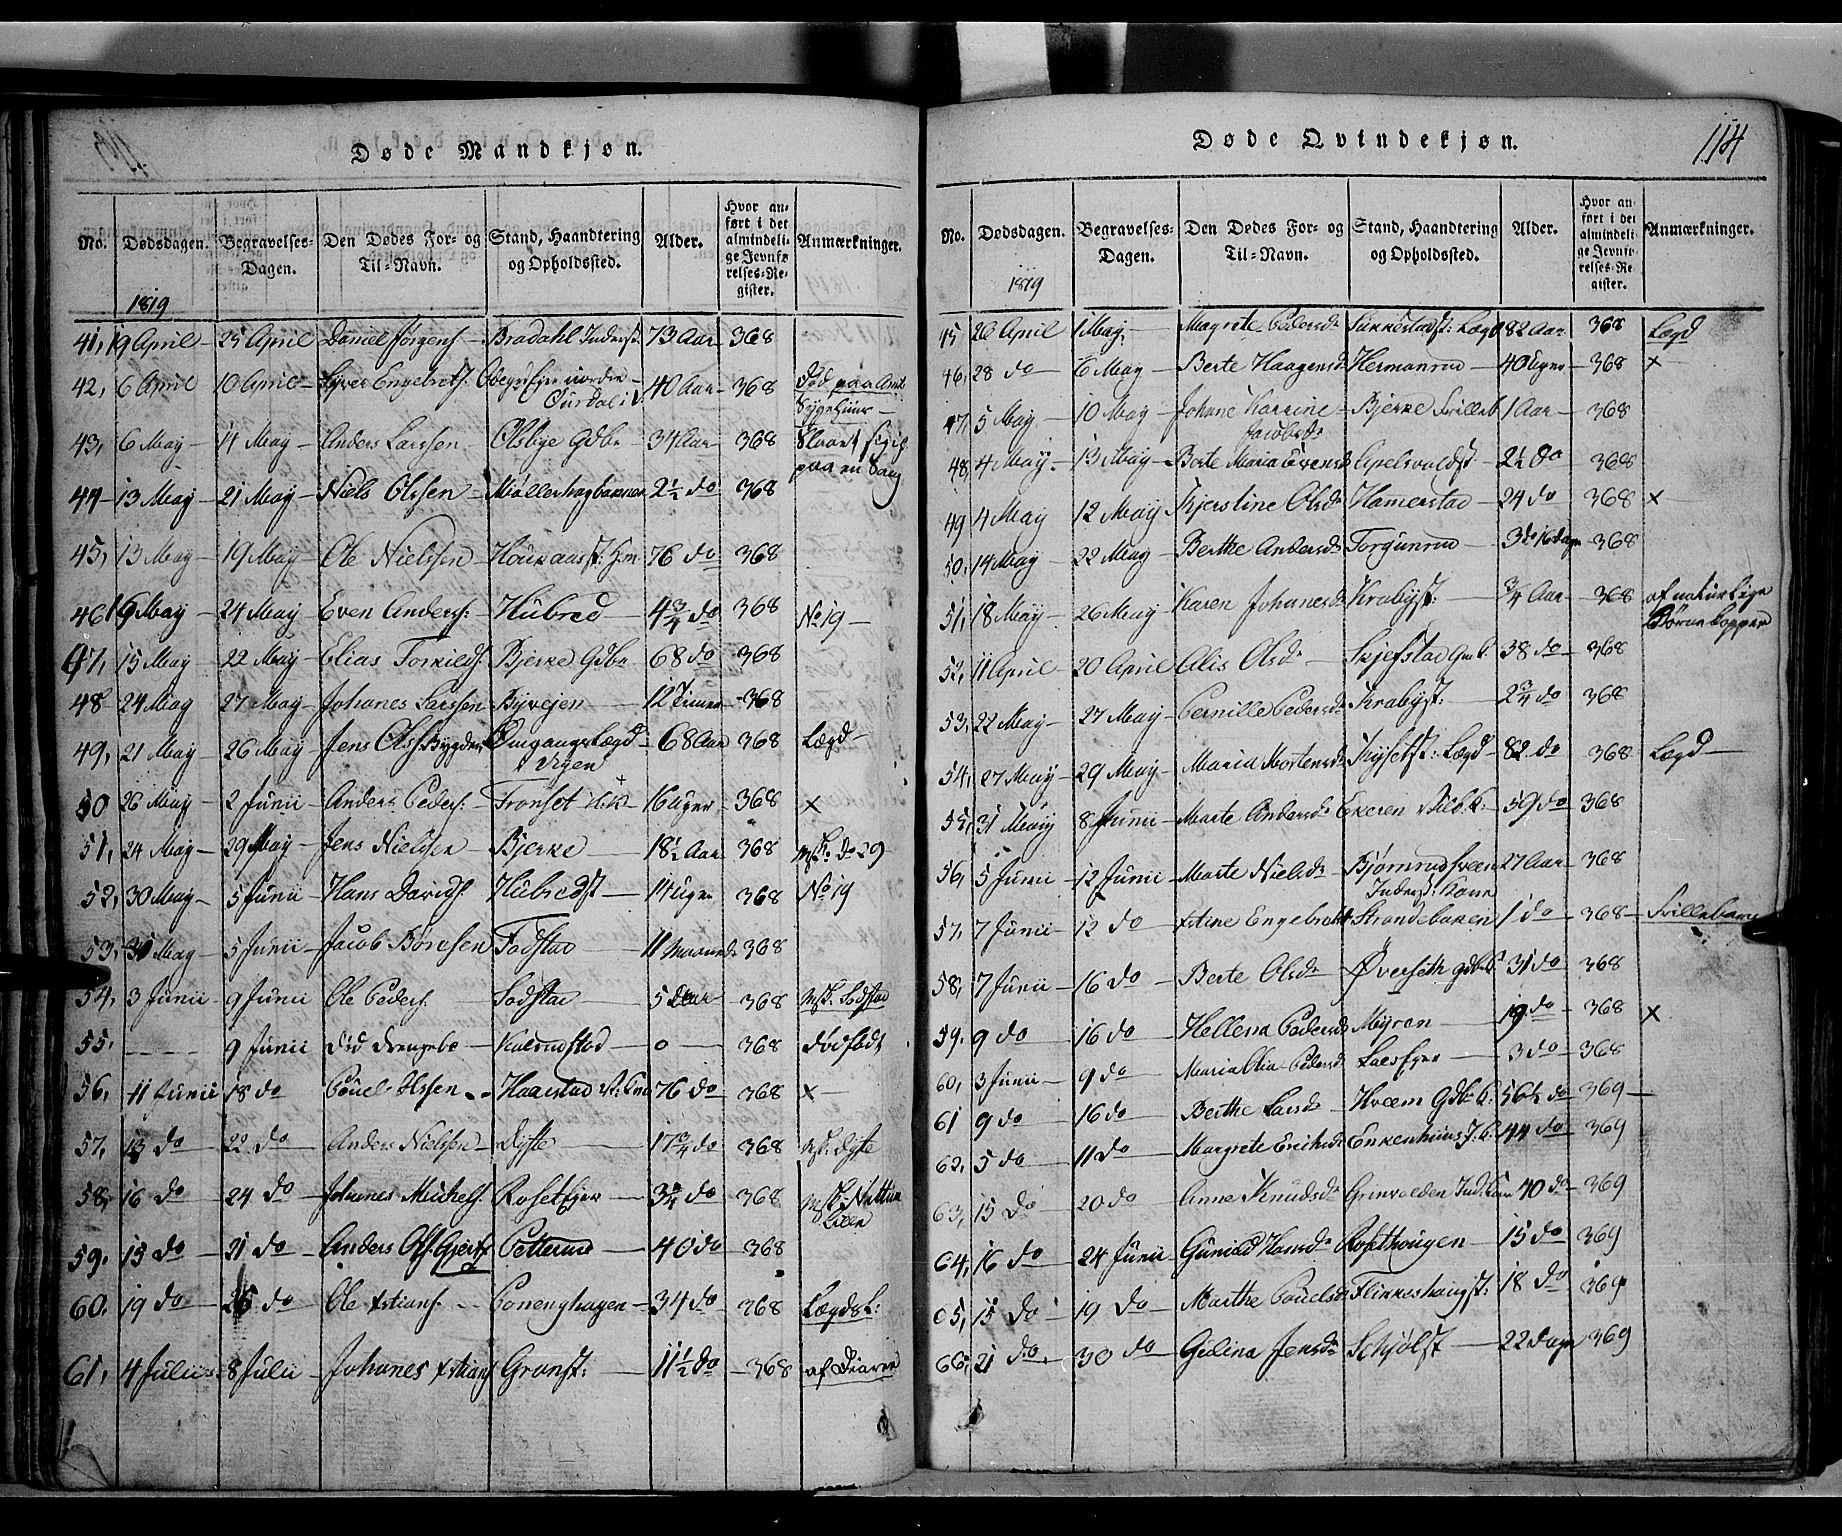 Døde Mandkjøn.
No. Dødsdagen. Begravelses-Dagen. Den Dødes For- og Til-Navn. Stand, Haandtering og Opholdssted. Alder. Hvor anført i det almindelige Jevnførelses-Register. Anmærkninger.
1819
41, 19 April – 25 April Daniel Jørgens – Bradahl Inderst 73 Aar 368
42, 6 April 10 April – Engelrets. nordre – 40 Aar 368 Død paa Amts
Ourdal i V. Sygehuus –
43, 6 May – 11 May – Anders Larssen, Olsbye Gdbr – 34 Aar 368 Slaaet sig
paa en Saug
44 – 13 May – 21 May – Niels Olssen – Møllerhagbakken 2½ do 368
45, 13 May – 19 May – Ole Nielssen – st: Hm 76 do 368
46 19 May – 24 May – Even Anders: – Hubred – 4¾ do 368 No 19 –
47, 15 May – 22 May – Elias Torkilds. Bjerke Gdbr 68 do 368
48 – 24 May 27 May – Johanes Larssen Byvejen – 12 Timer – 368
49, 21 May – 26 May – Jens Olss. Bygden Omgangslægd – 68 Aar 368 Lægd –
50 26 May – 2 Junii – Anders Peders: – Tronset 16 Uger – 368 ×
51, 24 May – 29 May – Jens Nielssen – Bjerke – 18½ Aar 368 do 29
52, 30 May – 5 Junii – Hans Davids. Hubredst – 14 Uger 368 No 19
53, 31 May – 5 Junii – Jacob Børresen Fodstad – 11 Maaned: 368
54, 3 Junii – 9 Junii – Ole Peders: Sodstad – 5 368 Sodstad
55. – 9 Junii Død Drengeb: Kulmdstad – 0 – 368 dødfødt
56, 11 Junii 18 do Pouel Olssen – Haarstad 76 do 368 ×
57, 13 do 22 do Anders Nielssen – Dyste – 17¾ do 368 Dyste
58, 16 do 24 do Johanes Michels. Rosetejer – 3¾ do 368
59. 15 do 21 do Anders Ols. Gjerts Petterud – 40 do 368
60. 19 do 26 do Ole xstians. – Conenghagen – 34 do 368 Lægdsl:
61, 4 Julii – 8 Julii – Johanes xstians Granst: – 11½ do – 368 af Diaree
Døde Qvindekjøn.
114
No. Dødsdagen. Begravelses-Dagen. Den Dødes For- og Til-Navn. Stand, Haandtering og Opholdssted. Alder. Hvor anført i det almindelige Jevnførelses-Register. Anmærkninger.
1819
45 26 April 1 May – Magrete Pedersd: Sukkestadst: Lægd 82 Aar 368 Lægd
46, 28 do 6 May – Berte Haagensd: Hermanrud – 40 Uger – 368 ×
47, 5 May – 10 May – Johane Karrine – Bjerke 1 Aar – 368
Jacobsd:
48, 4 May – 13 May – Berte Maria Evensd: Apelsvoldst. 2½ do 368
49 4 May 12 May Kjerstine Olsd: Hamerstad – 24 do 368 ×
50, 14 May – 22 May – Berthe Andersd: Torgunrud – 16 dage – 368
51, 18 May – 26 May – Karen Johanesd: Krabyst: – ¾ Aar – 368 af naturlige
Børnekopper
52, 11 April 20 April Olis Olsd: – Skjefstad 38 do – 368
53, 22 May – 27 May – Pernille Pedersd: Krabyst: – 2¾ do 368
54, 27 May – 29 May – Maria Mortensd: Lægd – 82 do 368 Lægd –
55, 31 May 8 Junii – Marte Andersd: Ekeren 59 do 368
56, 5 Junii – 12 Junii – Marte Nielsd: Bjørnrudsveen 27 Aar – 368
Inderst: Kone
57, 7 Junii – 12 do xstine Engebretsd: Strandebakken 1 do 368 – Tvillebarn
58, 7 Junii – 16 do Berte Olsd: Øverseth Gdb: K: 31 do 368
59. 9 do 16 do Hellena Pedersd: Myren – 19 do 368 ×
60, 3 Junii – 9 do Maria Olia Pedersd: – 3 do – 368
61 9 do 16 do – Berthe Larsd: Hveem Gdb: K: 56½ do – 369 –
62, 5 do 11 do Margrete Erichsd: Enkenhuus 44 do 369
63, 15 do 20 do Anne Knudsd: Grinvolden Ind: Kone 40 do 369
64, 16 do – 24 Junii Gunild Hansd: – 15 do 369
65, 15 do 19 do – Marthe Pouelsd: Flinkeshaugst: 18 do 369
66, 21 do – 30 do – Gulina Jensd: Schjølst – 22 dage 369